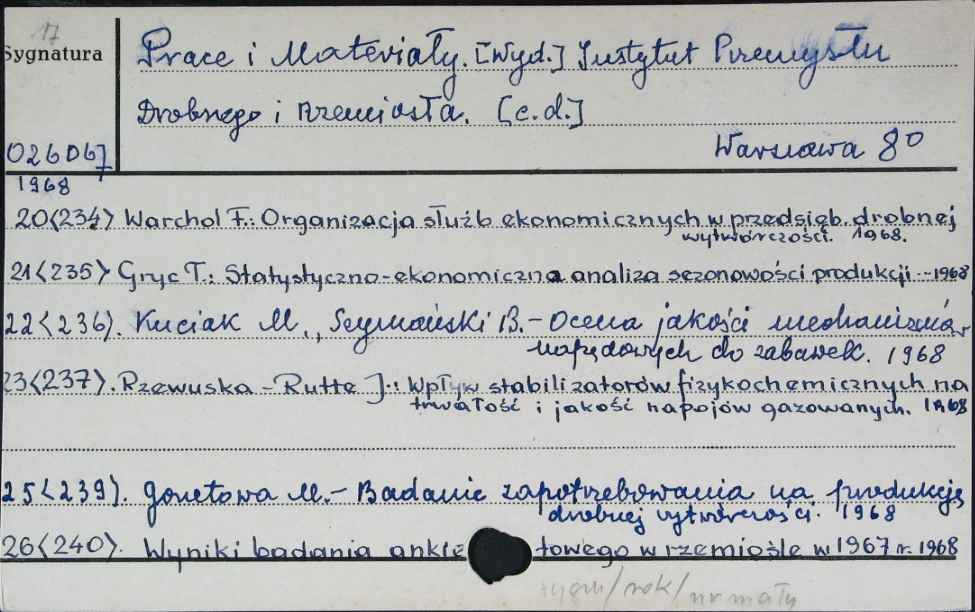 17
Sygnatura
Prace i Materiały. [Wyd.] Instytut Przemysłu
Drobnego i Rzemiosła. [c.d.]
026067
Warszawa 8°
1968
20<234> Warchoł F.: Organizacja służb ekonomicznych w przedsięb. drobnej
wytwórczości. 1968.
21<235> Gryc T.: Statystyczno-ekonomiczna analiza sezonowości produkcji.-1968
22<236>. Kuciak M., Szymański B.- Ocena jakości mechanizmów
napędowych do zabawek. 1968
23<237>. Rzewuska-Rutte J.: Wpływ stabilizatorów fizykochemicznych na
trwałość i jakość napojów gazowanych. 1968
25<239>. Gonetowa M.- Badanie zapotrzebowania na produkcję
drobnej wytwórczości. 1968
26<240>. Wyniki badania ankietowego w rzemiośle w 1967 r. 1968
sygn/rok/nr mały